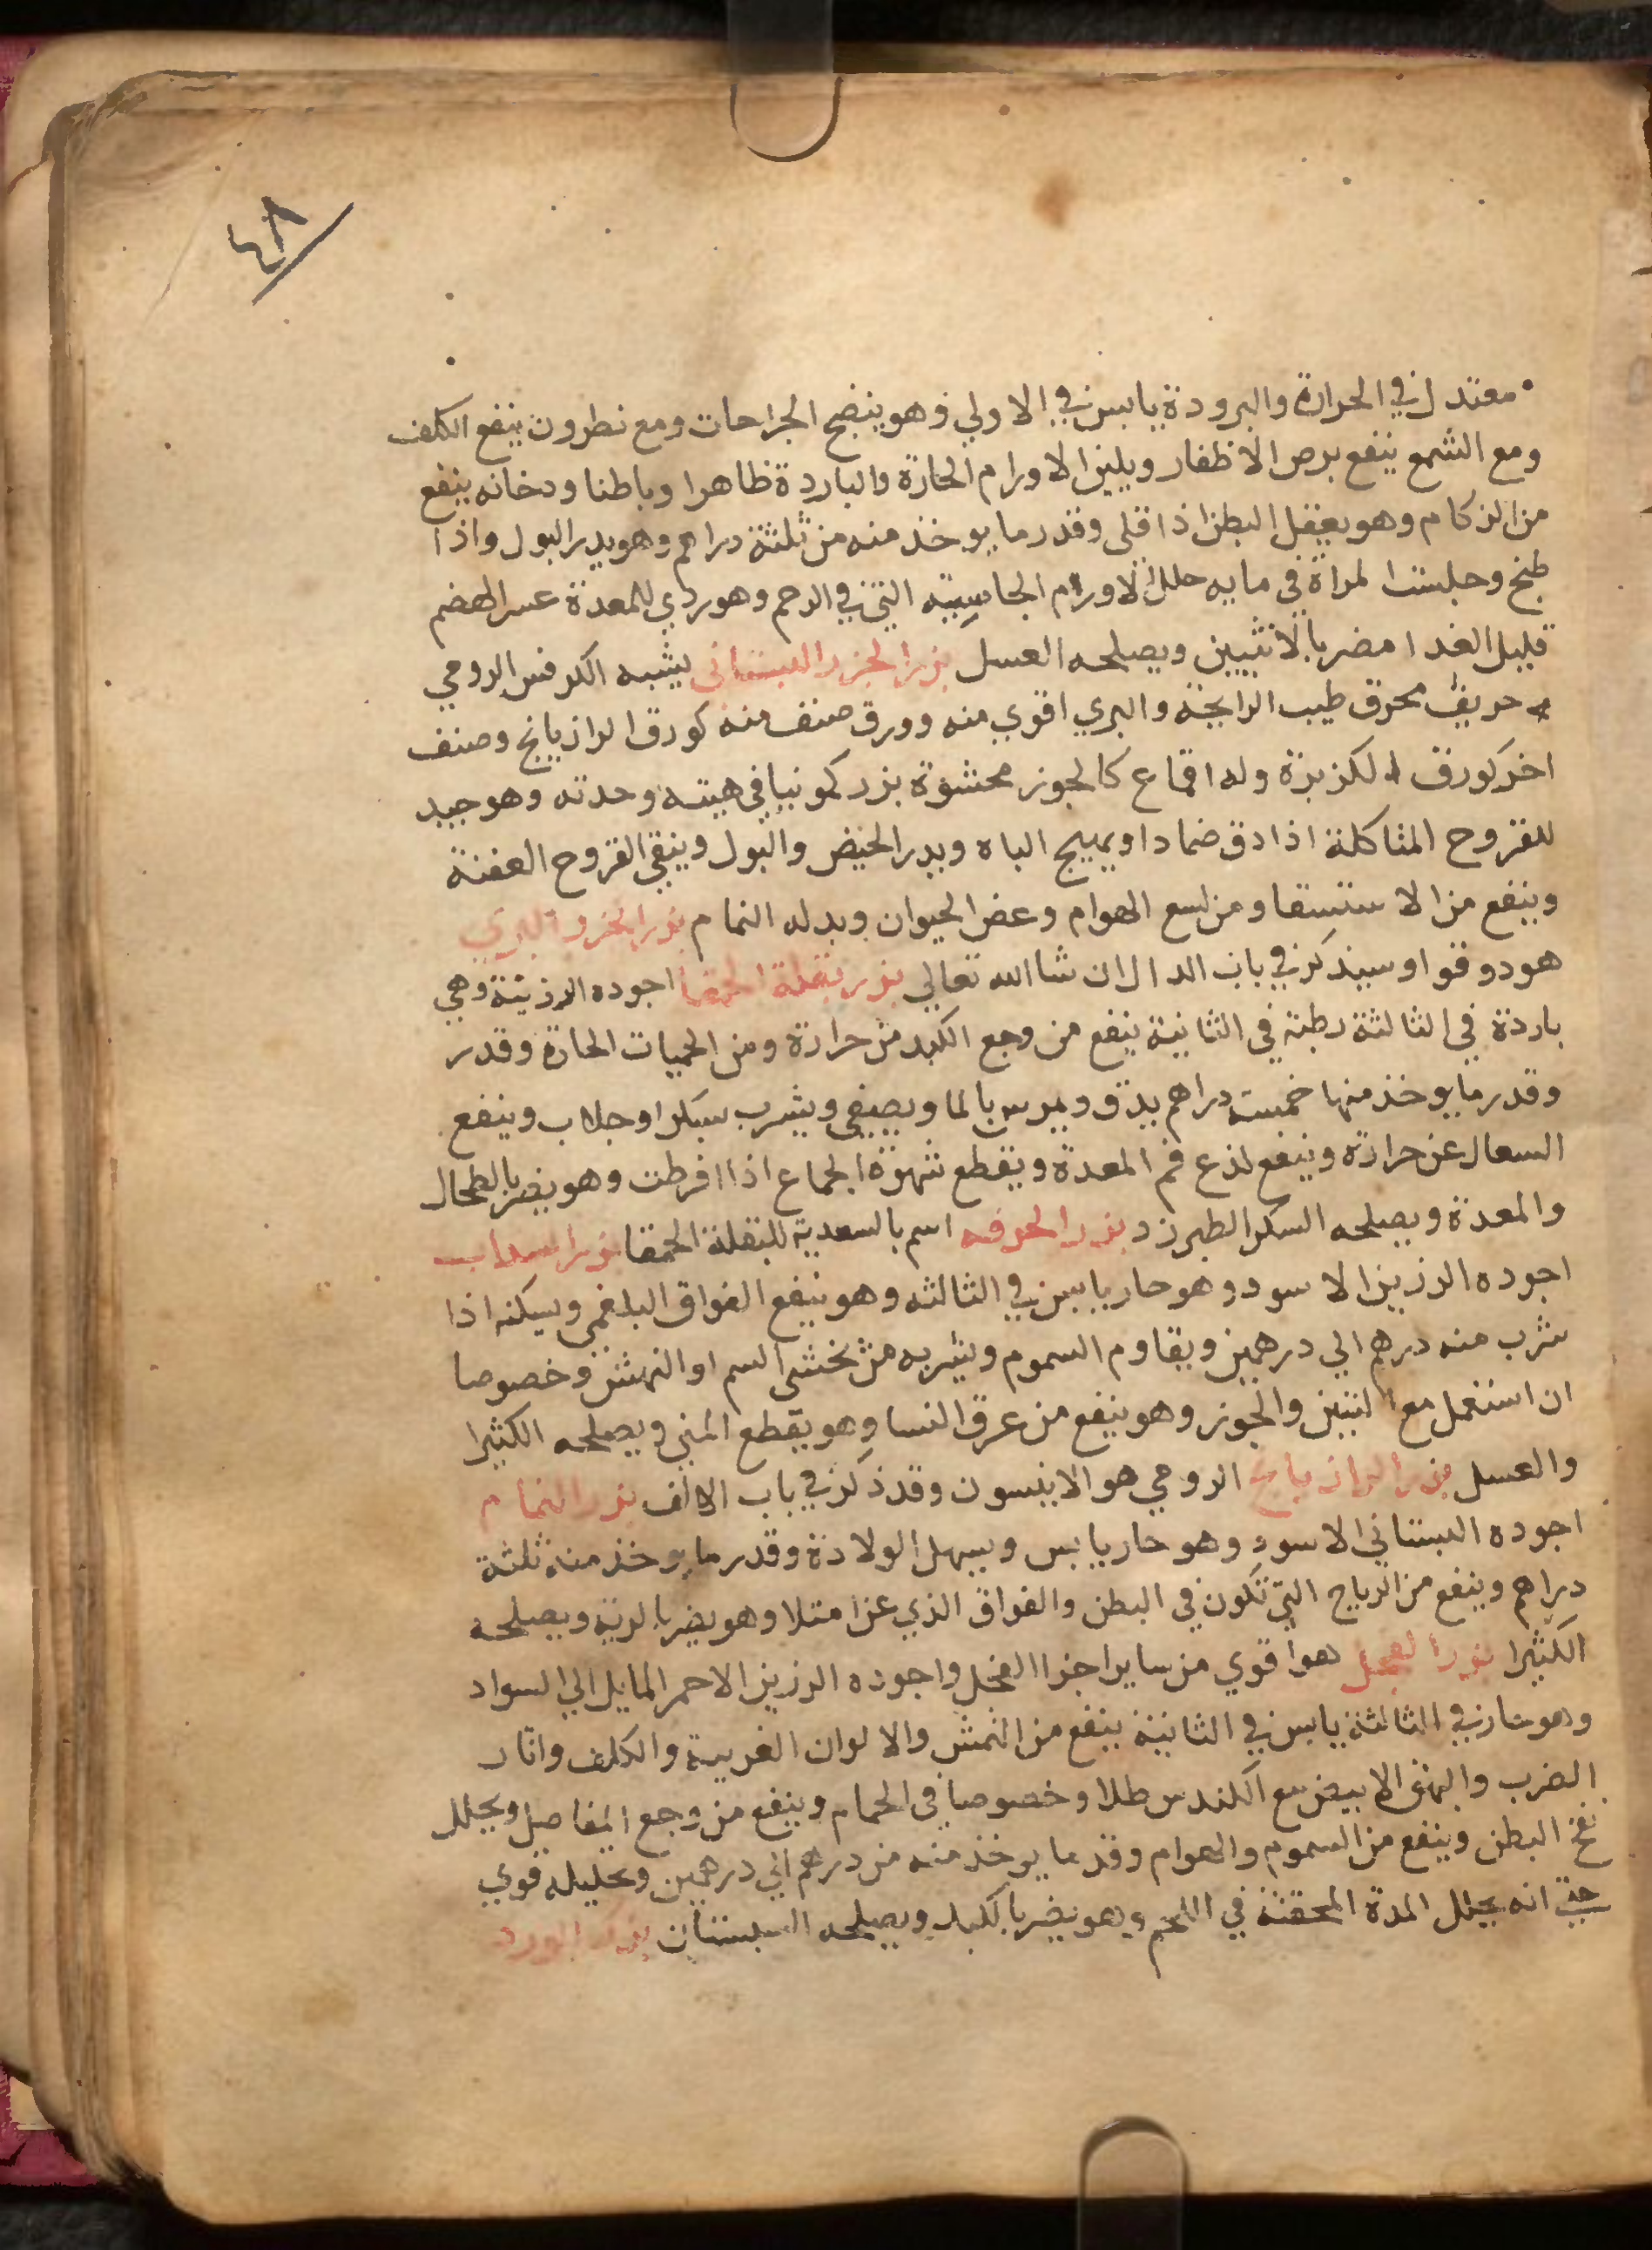 ٤٨
معتدل في الحرارة والبرودة يابس في الاولي وهو ينضج الجراحات ومع نطرون ينفع الكلف
ومع الشمع ينفع برص الاظفار ويلين الاورام الحارة والباردة ظاهرا وباطنا ودخانه ينفع
من الزكام وهو يعقل البطن اذا قلي وقدر ما يوخذ منه من ثلثة دراهم وهو يدر البول واذا
طبخ وجلست المراة في مايه حلل الاورام الجاسيته التي في الرحم وهو ردي للمعدة عسر الهضم
قليل الغدا مضر بالانثيين ويصلحه العسل بزر الجزر البستاني يشبه الكرفس الرومي
حريف محرق طيب الرايحة والبري اقوي منه وورق صنف منه كورق الرازيانج وصنف
اخر كورق الكزبرة وله اقماع كالجوز محشوة بزر كمونيا في هيته وحدته وهو جيد
للقروح المتاكلة اذا دق ضمادا ويهيج الباه ويدر الحيض والبول وينقي القروح العفنة
وينفع من الاستسقا ومن لسع الهوام وعض الحيوان وبدله النمام بزر الجزر البري
هو دوقوا وسيذكر في باب الدال ان شا الله تعالي بزر بقلة الحمقا اجوده الرزينة وهي
باردة في الثالثة رطبة في الثانية ينفع من وجع الكبد من حرارة ومن الحميات الحارة وقدر
وقدر ما يوخذ منها خمسة دراهم يدق ويمرس بالما ويصفي ويشرب بسكر او جلاب وينفع
السعال عن حرارة وينفع لذع فم المعدة ويقطع شهوة الجماع اذا افرطت وهو يضر بالطحال
والمعدة ويصلحه السكر الطبرزد بزر الحرفه اسم بالسعدية للبقلة الحمقا بزر السداب
اجوده الرزين الاسود وهو حار يابس في الثالثه وهو ينفع الفواق البلغمي ويسكنه اذا
شرب منه درهم الي درهمين ويقاوم السموم ويشربه من يخشي السم او النهش وخصوصا
ان استعمل مع التين والجوز وهو ينفع من عرق النسا وهو يقطع المني ويصلحه الكثيرا
والعسل بزر الرازيانج الرومي هو الانيسون وقد ذكر في باب الالف بزر النمام
اجوده البستاني الاسود وهو حار يابس ويسهل الولادة وقدر ما يوخذ منه ثلثة
دراهم وينفع من الرياح التي تكون في البطن والفواق الذي عن امتلا وهو يضر بالرية ويصلحه
الكثيرا بزر الفجل هو اقوي من ساير اجزا الفجل واجوده الرزين الاحمر المايل الي السواد
وهو حار في الثالثة يابس في الثانية ينفع من النمش والالوان الغريبة والكلف واثار
الضرب والبهق الابيض مع الكندس طلا وخصوصا في الحمام وينفع من وجع المفاصل ويحلل
نفخ البطن وينفع من السموم والهوام وقدر ما يوخذ منه من درهم الي درهمين وتحليله قوي
حتي انه يحلل المدة المحتقنة في اللحم وهو يضر بالكبد ويصلحه السبستان بزر الورد